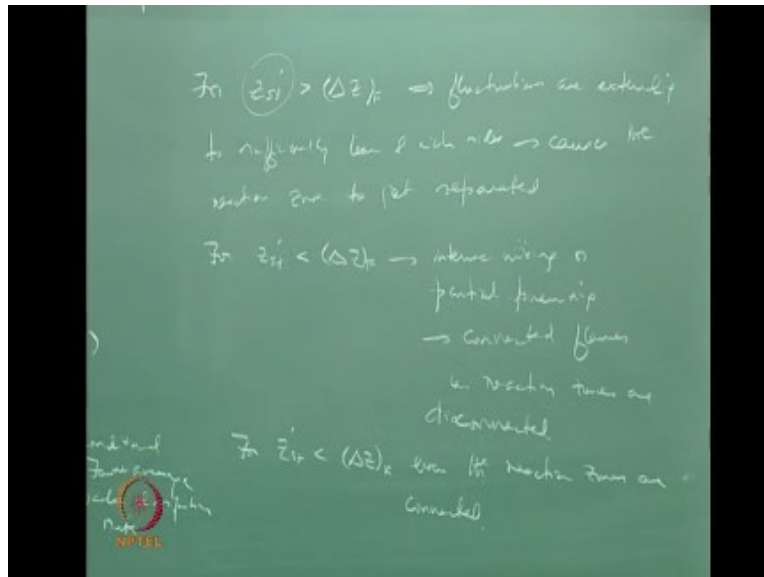 For Z'st > (ΔZ)F ⇒ fluctuations are extending
to sufficiently lean & rich sides → causes the
reaction zones to get separated
For Z'st < (ΔZ)F → intense mixing or
partial premixing
→ connected flames
i.e. reaction zones are
disconnected.
For Z'st < (ΔZ)R even the reaction zones are
connected.
)
Favre average
rate
NPTEL